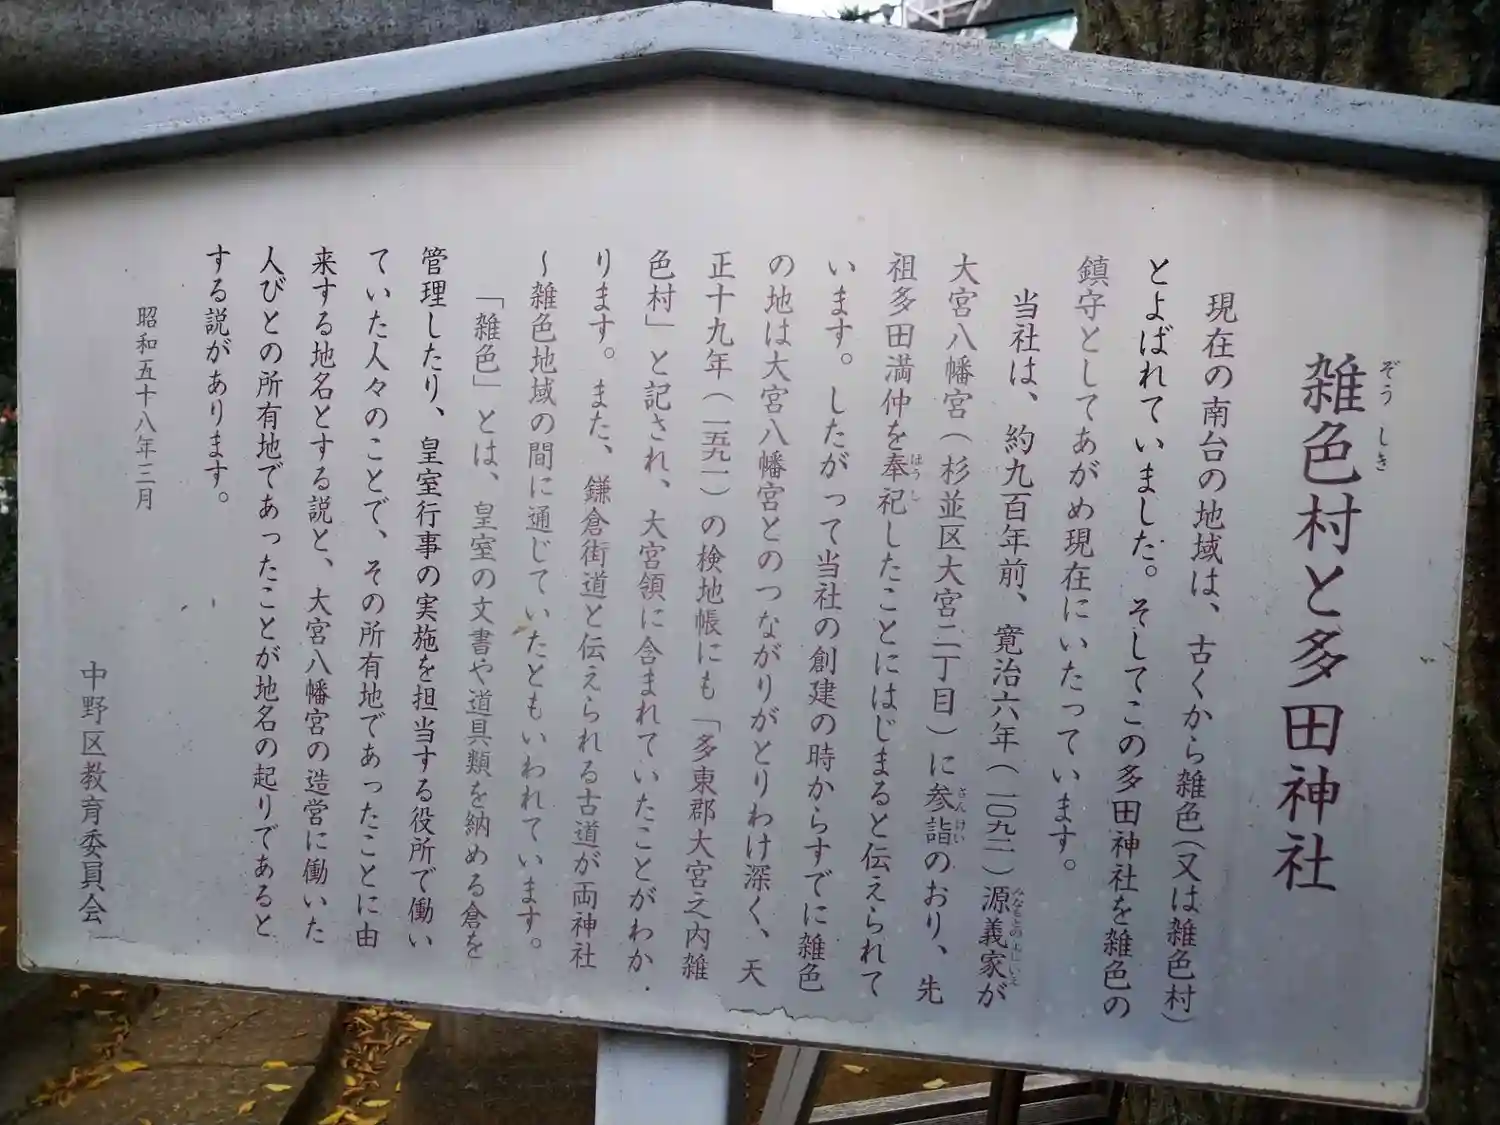 雑色村と多田神社
ぞうしき
現在の南台の地域は、古くから雑色(又は雑色村)
とよばれていました。そしてこの多田神社を雑色の
鎮守としてあがめ現在にいたっています。
当社は、約九百年前、寛治六年(一〇九二)源義家が
みなもとのよしいえ
大宮八幡宮(杉並区大宮二丁目)に参詣のおり、先
さんけい
祖多田満仲を奉祀したことにはじまると伝えられて
ほうし
います。したがって当社の創建の時からすでに雑色
の地は大宮八幡宮とのつながりがとりわけ深く、天
正十九年(一五九一)の検地帳にも「多東郡大宮之内雑
色村」と記され、大宮領に含まれていたことがわか
ります。また、鎌倉街道と伝えられる古道が両神社
~雑色地域の間に通じていたともいわれています。
「雑色」とは、皇室の文書や道具類を納める倉を
管理したり、皇室行事の実施を担当する役所で働い
ていた人々のことで、その所有地であったことに由
来する地名とする説と、大宮八幡宮の造営に働いた
人びとの所有地であったことが地名の起りであると
する説があります。
昭和五十八年三月
中野区教育委員会